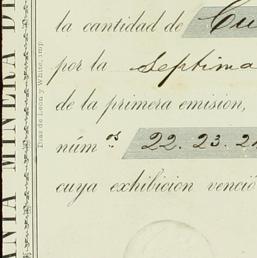 la cantidad de Cu
por la Septima
de la primera emisión,
núm os 22. 23. 2
cuya exhibición venció
Dias de Leon y White, imp.
MINERA DE